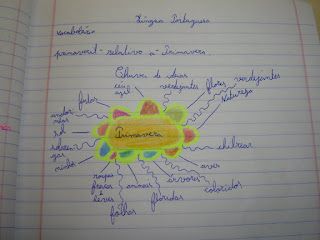 Língua Portuguesa
Vocabulário
primaveril - relativo à Primavera.
Chuva de
céu azul
verdejantes
flores
verdejantes
Natureza
festas
andorinhas
sol
Primavera
chilrear
ninhos
aves
coloridos
árvores
floridas
animais
folhas
roupas frescas e leves